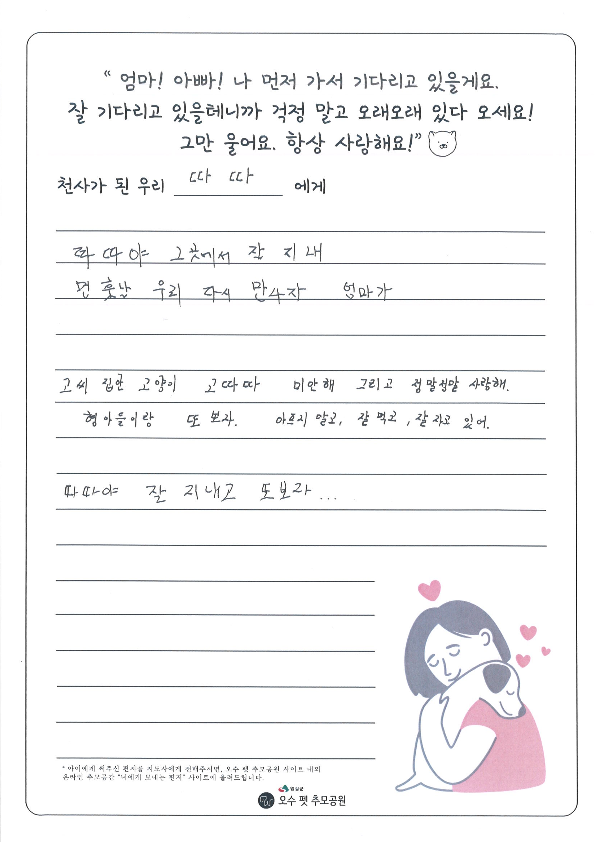 “ 엄마! 아빠! 나 먼저 가서 기다리고 있을게요.
잘 기다리고 있을테니까 걱정 말고 오래오래 있다 오세요!
그만 울어요. 항상 사랑해요!”
천사가 된 우리 따 따 에게
따 따 야 그곳에서 잘 지내
먼 훗날 우리 다시 만나자 엄마가
고씨 집안 고양이 고 따 따 미안해 그리고 정말정말 사랑해.
형아들이랑 또 보자. 아프지 말고, 잘 먹고, 잘 자고 있어.
따따야 잘 지내고 또보자...
* 아이에게 써주신 편지를 지도사에게 전해주시면, 오수 펫 추모공원 사이트 내의
온라인 추모공간 "너에게 보내는 편지" 사이트에 올려드립니다.
임실군
오수 펫 추모공원